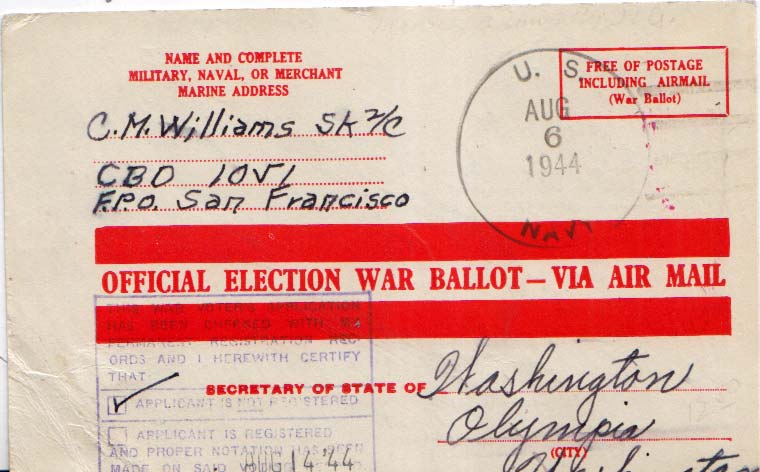 NAME AND COMPLETE
MILITARY, NAVAL, OR MERCHANT
MARINE ADDRESS
C.M. Williams SK 2/C
CBD 1051
F.P.O. San Francisco
U. S.
AUG
6
1944
NAVY
FREE OF POSTAGE
INCLUDING AIRMAIL
(War Ballot)
OFFICIAL ELECTION WAR BALLOT—VIA AIR MAIL
THIS WAR VOTER'S APPLICATION
HAS BEEN CHECKED WITH MY
PERMANENT REGISTRATION REC-
ORDS AND I HEREWITH CERTIFY
THAT
APPLICANT IS NOT REGISTERED
APPLICANT IS REGISTERED
AND PROPER NOTATION HAS BEEN
MADE ON SAID
AUG 14 '44
SECRETARY OF STATE OF Washington
Olympia
(CITY)
Washington